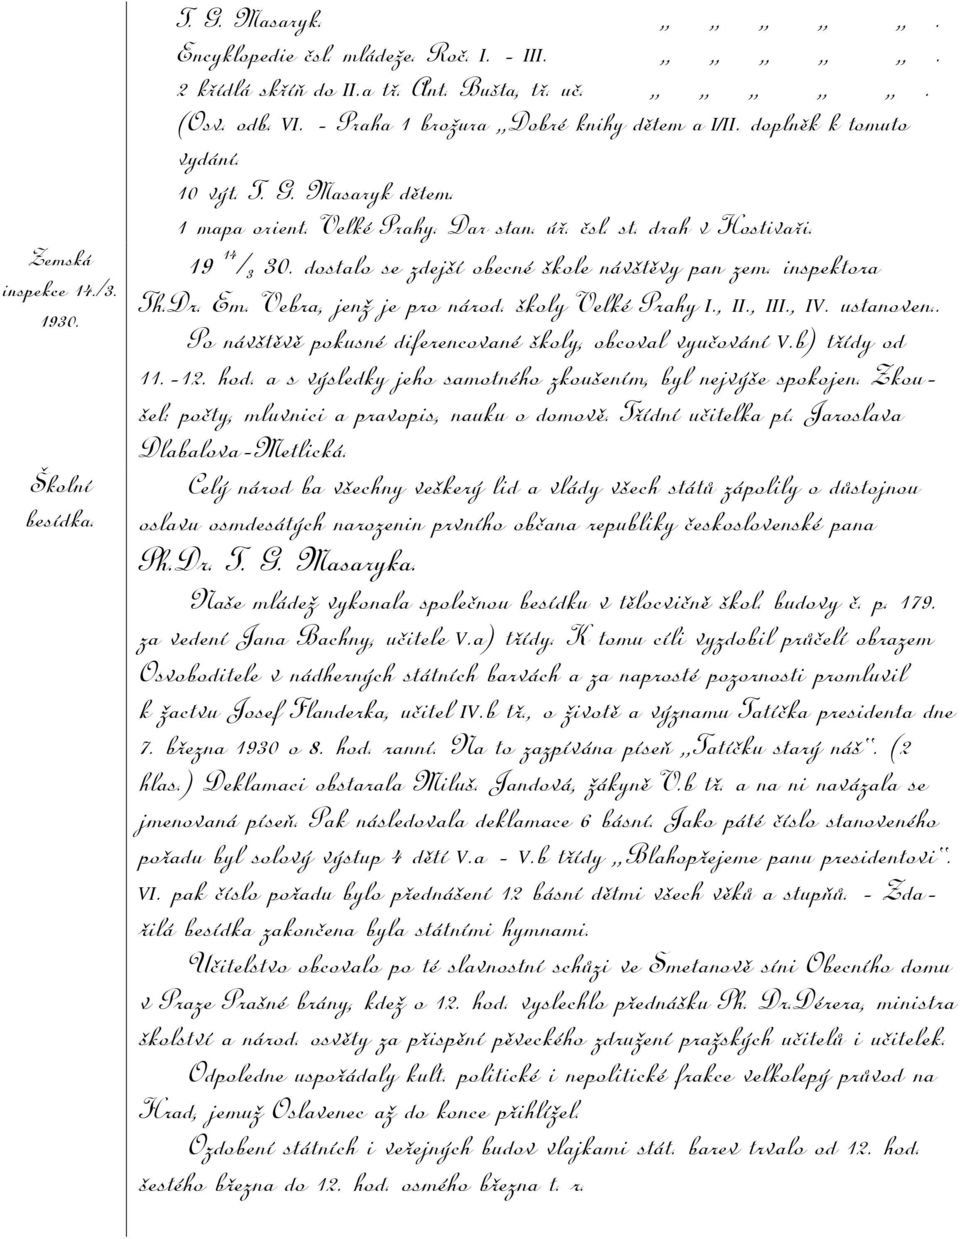 T. G. Masaryk. „ „ „ „ „ .
Encyklopedie čsl. mládeže. Roč. I. - III. „ „ „ „ „ .
2 křídlá skříň do II.a tř. Ant. Bušta, tř. uč. „ „ „ „ „ .
(Osv. odb. VI. - Praha 1 brožura „Dobré knihy dětem a I/II. doplněk k tomuto
vydání.
10 výt. T. G. Masaryk dětem.
1 mapa orient. Velké Prahy. Dar stan. úř. čsl. st. drah v Hostivaři.
Zemská
inspekce 14./3.
1930.
19 14/3 30. dostalo se zdejší obecné škole návštěvy pan zem. inspektora
Th.Dr. Em. Vebra, jenž je pro národ. školy Velké Prahy I., II., III., IV. ustanoven..
Po návštěvě pokusné diferencované školy, obcoval vyučování V.b) třídy od
11. -12. hod. a s výsledky jeho samotného zkoušením, byl nejvýše spokojen. Zkou-
šel: počty, mluvnici a pravopis, nauku o domově. Třídní učitelka pí. Jaroslava
Dlabalova-Metlická.
Školní
besídka.
Celý národ ba všechny veškerý lid a vlády všech států zápolily o důstojnou
oslavu osmdesátých narozenin prvního občana republiky československé pana
Ph.Dr. T. G. Masaryka.
Naše mládež vykonala společnou besídku v tělocvičně škol. budovy č. p. 179.
za vedení Jana Bachny, učitele V.a) třídy. K tomu cíli vyzdobil průčelí obrazem
Osvoboditele v nádherných státních barvách a za naprosté pozornosti promluvil
k žactvu Josef Flanderka, učitel IV.b tř., o životě a významu Tatíčka presidenta dne
7. března 1930 o 8. hod. ranní. Na to zazpívána píseň „Tatíčku starý náš“. (2
hlas.) Deklamaci obstarala Miluš. Jandová, žákyně V.b tř. a na ni navázala se
jmenovaná píseň. Pak následovala deklamace 6 básní. Jako páté číslo stanoveného
pořadu byl solový výstup 4 dětí V.a - V.b třídy „Blahopřejeme panu presidentovi“.
VI. pak číslo pořadu bylo přednášení 12 básní dětmi všech věků a stupňů. - Zda-
řilá besídka zakončena byla státními hymnami.
Učitelstvo obcovalo po té slavnostní schůzi ve Smetanově síni Obecního domu
v Praze Prašné brány, kdež o 12. hod. vyslechlo přednášku Ph. Dr.Dérera, ministra
školství a národ. osvěty za přispění pěveckého združení pražských učitelů i učitelek.
Odpoledne uspořádaly kult. politické i nepolitické frakce velkolepý průvod na
Hrad, jemuž Oslavenec až do konce přihlížel.
Ozdobení státních i veřejných budov vlajkami stát. barev trvalo od 12. hod.
šestého března do 12. hod. osmého března t. r.